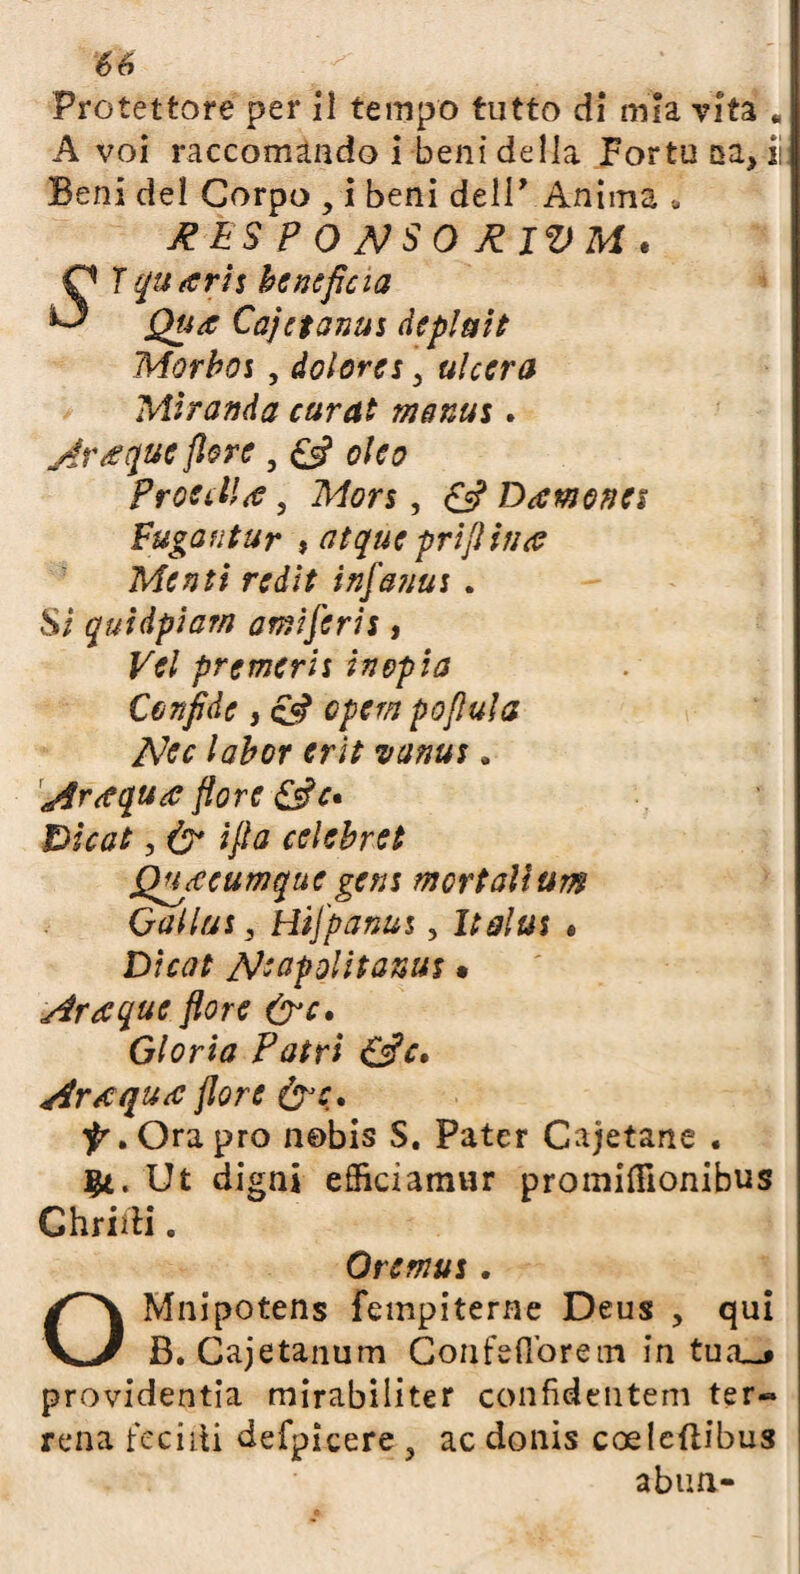 66
Protettore per il tempo tutto di mia vita .
A voi raccomando i beni della Fortu na, i
Beni del Corpo , i beni dell' Anima .
RESPONSORIVM.
SI quæris beneficia
Quæ Cajetanus depluit
Morbos , dolores , ulcera
Miranda curat manus .
Aræque flore , & oleo
Procellæ , Mors , & Dæmones
Fugantur , atque priſtinæ
Menti redit inſanus .
Si quidpiam amiſeris ,
Vel premeris inopia
Confide , & opem poſtula
Nec labor erit vanus .
Aræquæ flore &c.
Dicat , & iſta celebret
Quæcumque gens mortalium
Gallus , Hiſpanus , Italus .
Dicat Neapolitanus .
Aræque flore &c.
Gloria Patri &c.
Aræquæ flore &c.
℣. Ora pro nobis S. Pater Cajetane .
℟. Ut digni efficiamur promiſſionibus
Chriſti .
Oremus .
OMnipotens ſempiterne Deus , qui
B. Cajetanum Confeſſorem in tua
providentia mirabiliter confidentem ter-
rena feciſti deſpicere , ac donis cœleſtibus
abun-